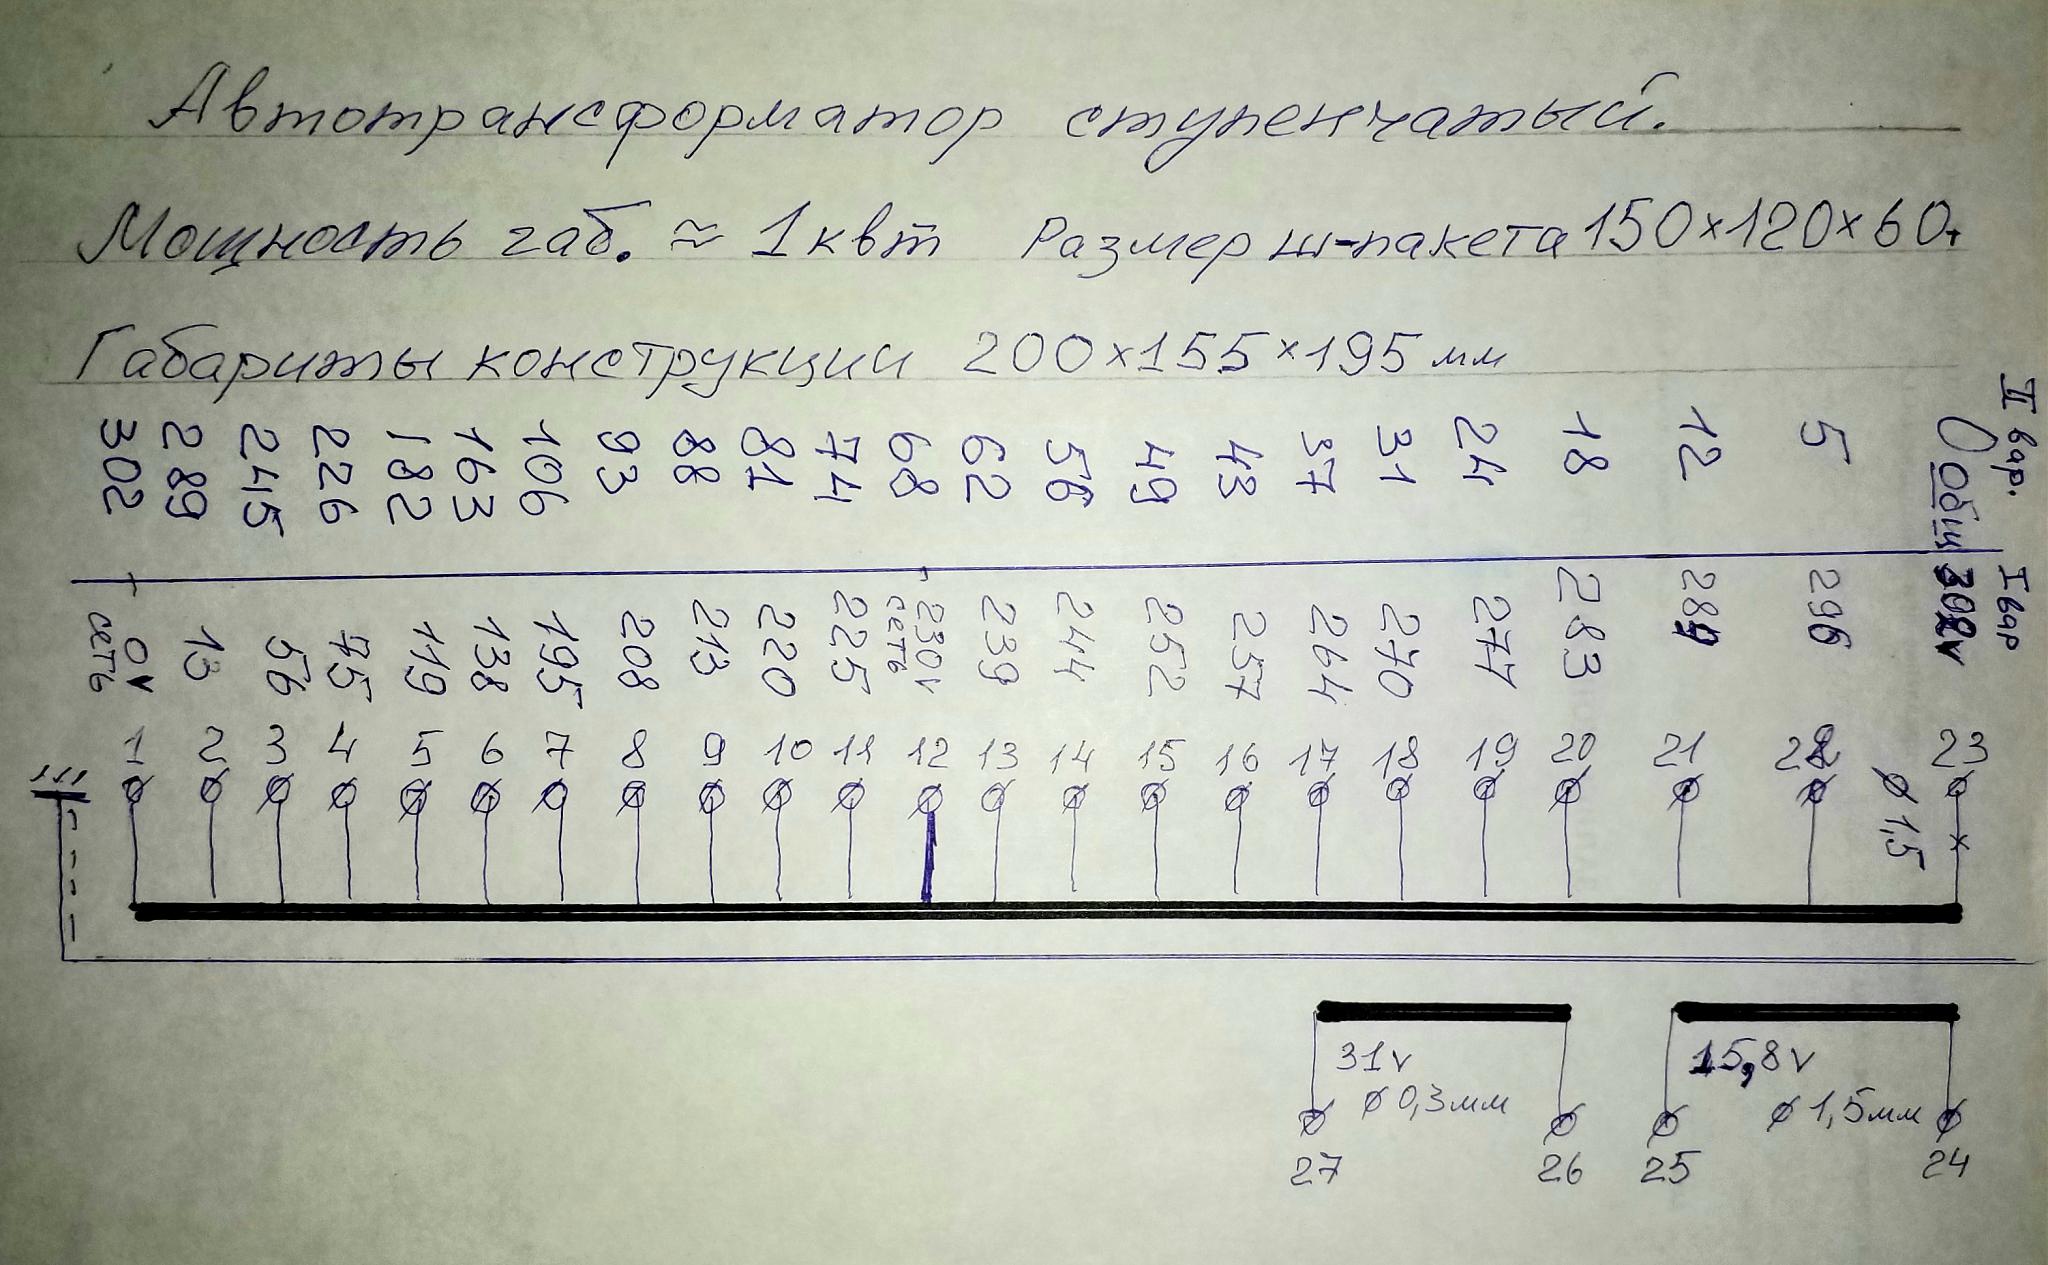 Автотрансформатор ступенчатый.
Мощность габ. ≈ 1квт Размер ш-пакета 150×120×60.
Габариты конструкции 200×155×195 мм
302 289 245 226 182 163 106 93 88 81 74 68 62 56 49 43 37 31 24 18 12 5 0 Общ II вар.
0v сеть 13 56 75 119 138 195 208 213 220 225 230v сеть 239 244 252 257 264 270 277 283 289 296 302v I вар
1 2 3 4 5 6 7 8 9 10 11 12 13 14 15 16 17 18 19 20 21 22 23
ø 1,5
31v 15,8v
ø 0,3мм ø 1,5мм
27 26 25 24